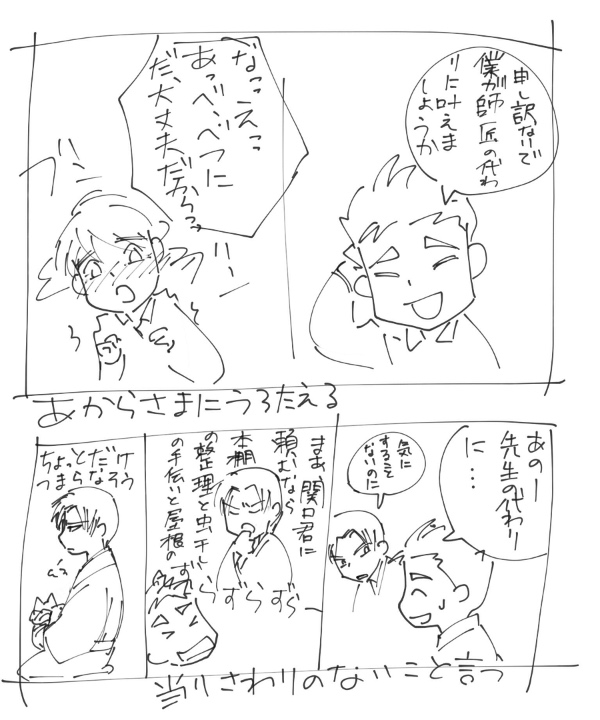 申し訳ないで
僕が師匠の代わ
りに叶えま
しょうか
なっえっ
あっべ、べつに
だ、大丈夫だからっ
ブン
あからさまにうろたえる
あのー
先生の代わり
に…
気に
することで
ないのに
まあ関口君に
頼むなら
本棚
の整理と虫干し
の手伝いと屋根の
ずらずらずらー
ちょっとだけ
つまらなそう
当りさわりのないこと言う